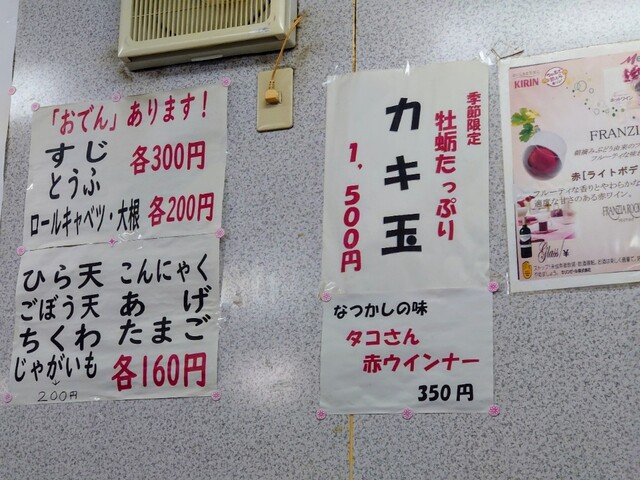 「おでん」あります!
すじ
とうふ
各300円
ロールキャベツ・大根 各200円
ひら天 こんにゃく
ごぼう天 あげ
ちくわ たまご
じゃがいも 各160円
200円
季節限定
牡蛎たっぷり
カキ玉
1,500円
なつかしの味
タコさん
赤ウインナー
350円
KIRIN
FRANZIA
赤[ライトボデ
フルーティな香りとやわらかな
適度な甘さのある赤ワイン。
Glass/¥